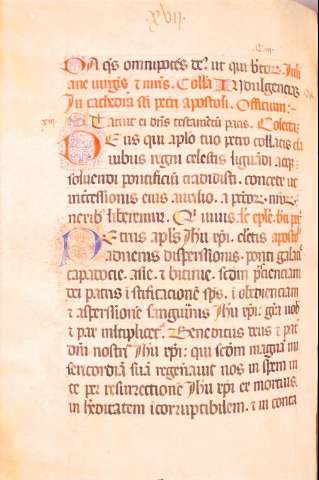 xvij.
Da qs omnipotes de? ut qui btor. Juli
ane virgis & mris. Colla Indulgencias
In cathedra sci petri apostoli. Officium:
Statuit ei dns testamētū pacis. Colecta
Deus qui aplo tuo petro collatis cla
uibus regni celestis ligandi atqz
soluendi pontificiū tradidisti. concede ut
intercessionis eius auxilio. a pctor. nror.
nexib liberemur. Qui viuis. lc eple. bti pe
Petrus apls Jhu xpi. electis apostoli
aduenis dispersionis. ponti galacie
capadocie. asie. & bitinie. scdm psciencia
dei patris i sctificacione sps. i obedienciam
& aspersione sanguinis Jhu xpi. gra uob
& pax multiplicet. Benedictus deus & pat
dni nostri Jhu xpi: qui scdm magna mi
sericordia sua regenauit nos in spem ui
te per resurrectione Jhu xpi ex mortuis.
in hereditatem icorruptibilem. & in conta